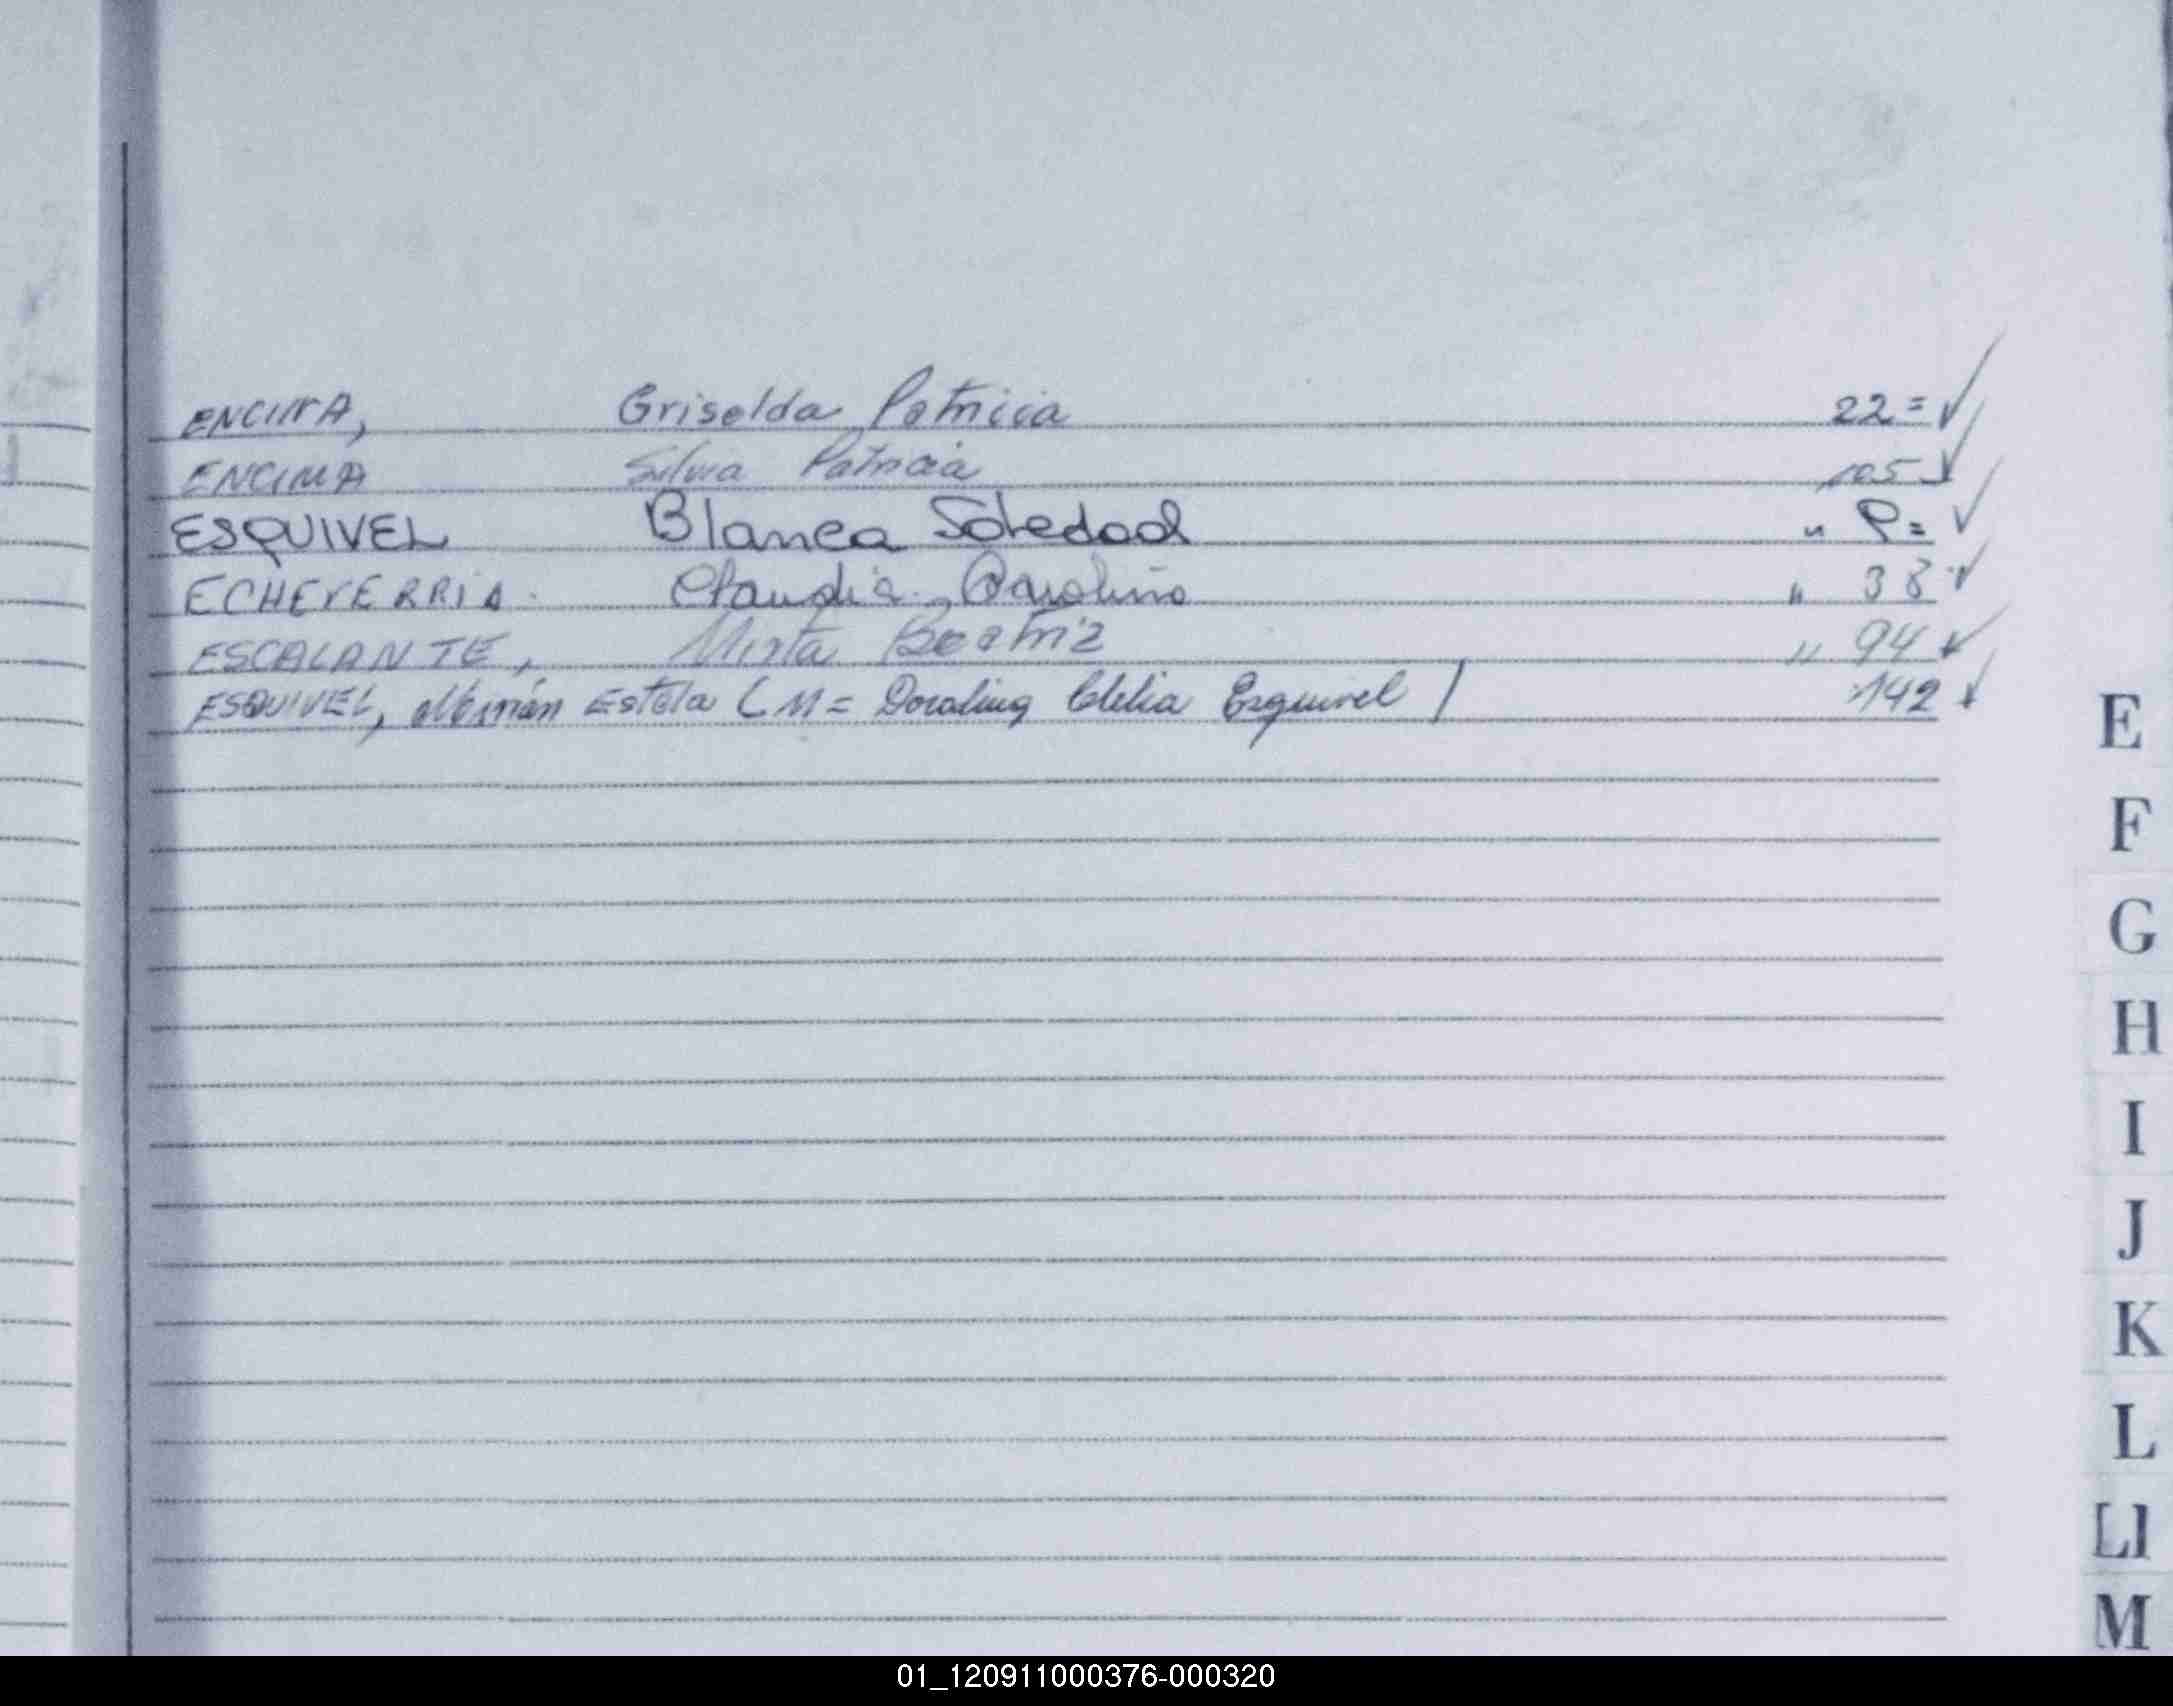 ENCINA, Griselda Patricia 22 =
ENCINA Silvia Patricia 105
ESQUIVEL Blanca Soledad " 9 =
ECHEVERRIA Claudia Carolina " 38
ESCALANTE, Mirta Beatriz " 94
ESQUIVEL, Estela ( M = Clelia Esquivel ) 142
E
F
G
H
I
J
K
L
Ll
M
01_120911000376-000320